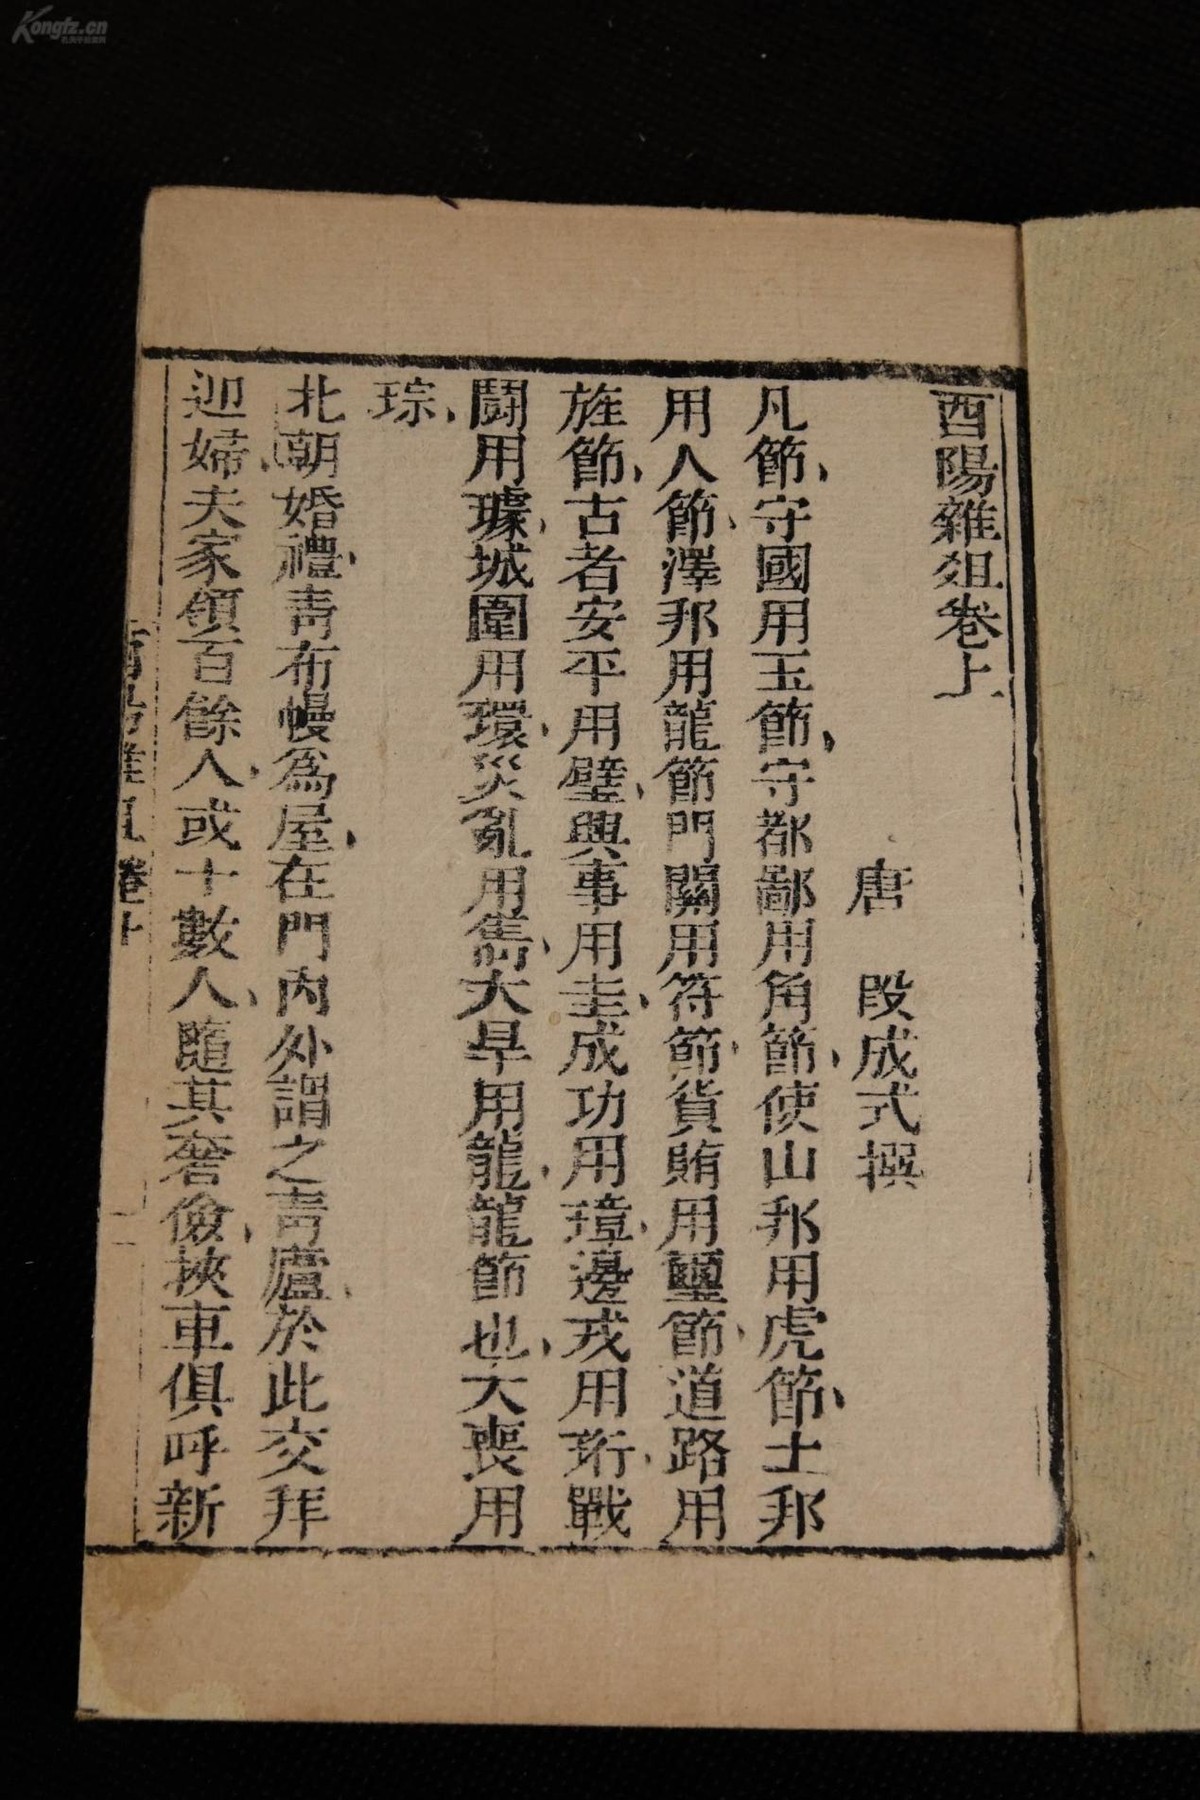 酉陽雜俎卷上
唐 段成式撰
凡節守國用玉節守都鄙用角節使山邦用虎節土邦
用人節澤邦用龍節門關用符節貨賄用璽節道路用
旌節古者安平用璧興事用圭成功用璋邊戎用珩戰
鬬用璩城圍用環災亂用雋大旱用龍龍節也大喪用
琮
北朝婚禮靑布幔爲屋在門內外謂之靑廬於此交拜
迎婦夫家領百餘人或十數人隨其奢儉挾車俱呼新
Kongfz.cn